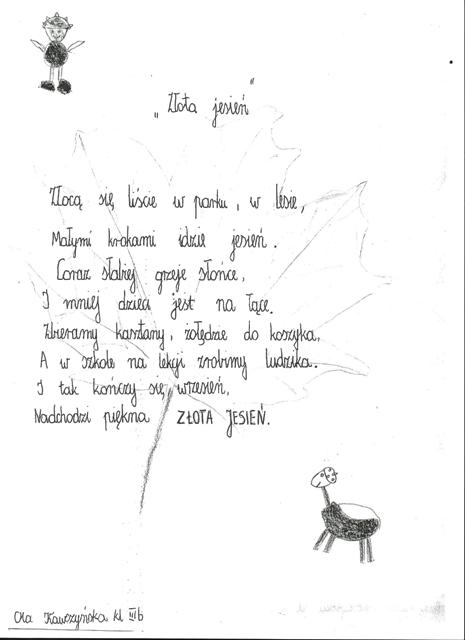 „Złota jesień"
Złocą się liście w parku, w lesie,
Małymi krokami idzie jesień.
Coraz słabiej grzeje słońce,
I mniej dzieci jest na łące.
Zbieramy kasztany, żołędzie do koszyka,
A w szkole na lekcji zrobimy ludzika.
I tak kończy się wrzesień,
Nadchodzi piękna ZŁOTA JESIEŃ.
Ola Kawczyńska kl IIIb